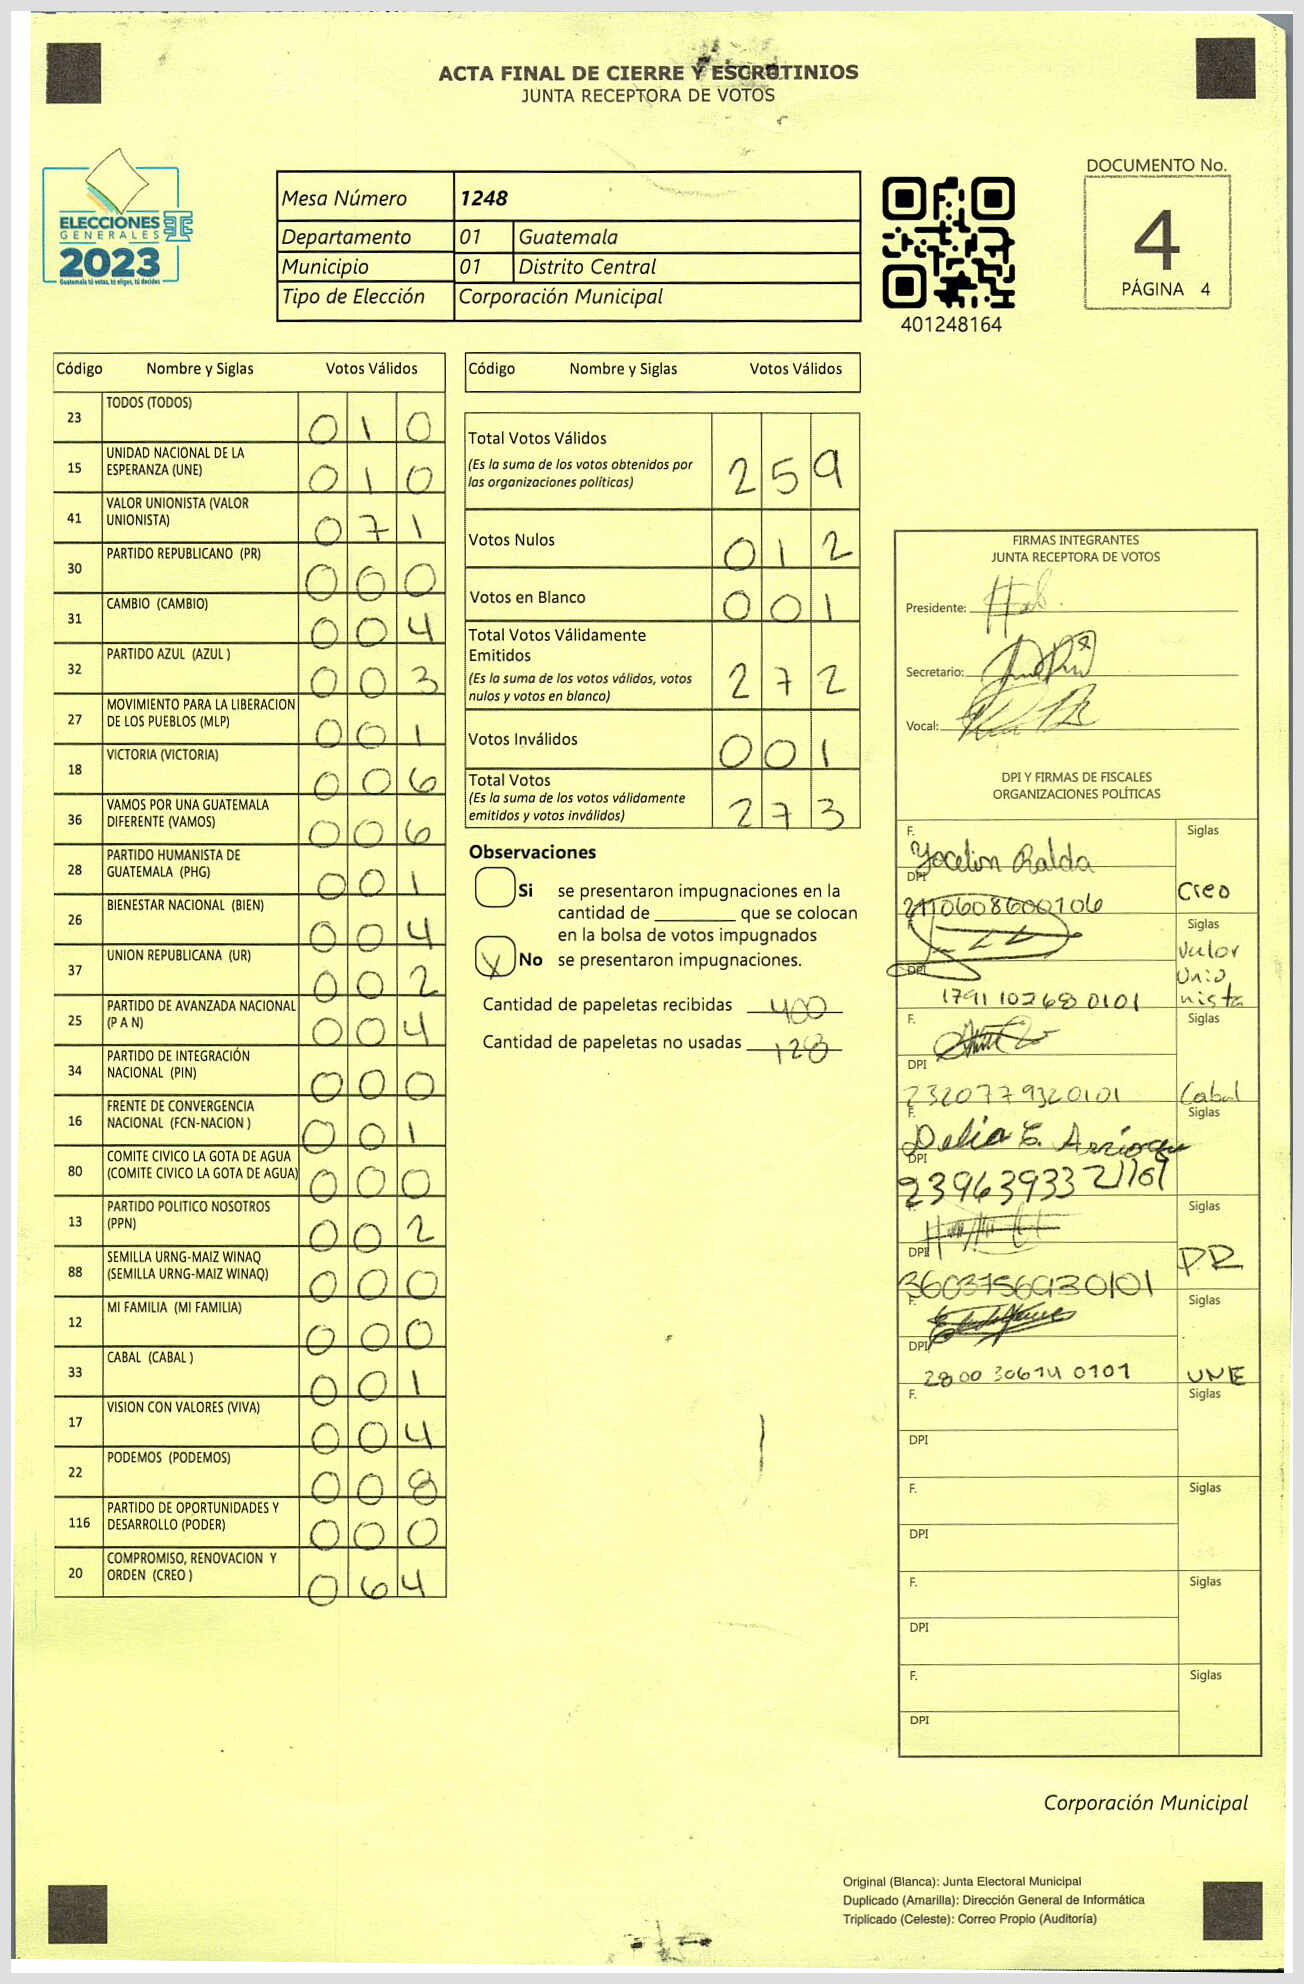 ACTA FINAL DE CIERRE Y ESCRUTINIOS
JUNTA RECEPTORA DE VOTOS
ELECCIONES
GENERALES
2023
Guatemala tú votas, tú eliges, tú decides
Mesa Número 1248
Departamento 01 Guatemala
Municipio 01 Distrito Central
Tipo de Elección Corporación Municipal
401248164
DOCUMENTO No.
4
PÁGINA 4
Código Nombre y Siglas Votos Válidos
23 TODOS (TODOS) 0 1 0
15 UNIDAD NACIONAL DE LA ESPERANZA (UNE) 0 1 0
41 VALOR UNIONISTA (VALOR UNIONISTA) 0 7 1
30 PARTIDO REPUBLICANO (PR) 0 0 0
31 CAMBIO (CAMBIO) 0 0 4
32 PARTIDO AZUL (AZUL ) 0 0 3
27 MOVIMIENTO PARA LA LIBERACION DE LOS PUEBLOS (MLP) 0 0 1
18 VICTORIA (VICTORIA) 0 0 6
36 VAMOS POR UNA GUATEMALA DIFERENTE (VAMOS) 0 0 6
28 PARTIDO HUMANISTA DE GUATEMALA (PHG) 0 0 1
26 BIENESTAR NACIONAL (BIEN) 0 0 4
37 UNION REPUBLICANA (UR) 0 0 2
25 PARTIDO DE AVANZADA NACIONAL (P A N) 0 0 4
34 PARTIDO DE INTEGRACIÓN NACIONAL (PIN) 0 0 0
16 FRENTE DE CONVERGENCIA NACIONAL (FCN-NACION ) 0 0 1
80 COMITE CIVICO LA GOTA DE AGUA (COMITE CIVICO LA GOTA DE AGUA) 0 0 0
13 PARTIDO POLITICO NOSOTROS (PPN) 0 0 2
88 SEMILLA URNG-MAIZ WINAQ (SEMILLA URNG-MAIZ WINAQ) 0 0 0
12 MI FAMILIA (MI FAMILIA) 0 0 0
33 CABAL (CABAL ) 0 0 1
17 VISION CON VALORES (VIVA) 0 0 4
22 PODEMOS (PODEMOS) 0 0 8
116 PARTIDO DE OPORTUNIDADES Y DESARROLLO (PODER) 0 0 0
20 COMPROMISO, RENOVACION Y ORDEN (CREO ) 0 6 4
Código Nombre y Siglas Votos Válidos
Total Votos Válidos 2 5 9
(Es la suma de los votos obtenidos por
las organizaciones políticas)
Votos Nulos 0 1 2
Votos en Blanco 0 0 1
Total Votos Válidamente
Emitidos
(Es la suma de los votos válidos, votos
nulos y votos en blanco) 2 7 2
Votos Inválidos 0 0 1
Total Votos
(Es la suma de los votos válidamente
emitidos y votos inválidos) 2 7 3
Observaciones
Si se presentaron impugnaciones en la
cantidad de ________ que se colocan
en la bolsa de votos impugnados
X No se presentaron impugnaciones.
Cantidad de papeletas recibidas 400
Cantidad de papeletas no usadas 128
FIRMAS INTEGRANTES
JUNTA RECEPTORA DE VOTOS
Presidente:
Secretario:
Vocal:
DPI Y FIRMAS DE FISCALES
ORGANIZACIONES POLÍTICAS
F. Yocelin Ralda Siglas
DPI Creo
F. Siglas
Valor
Unio
nista
DPI 1791 10268 0101
F. Siglas
DPI 2320779320101 Cabal
F. Delia E. Siglas
DPI
F. Siglas
DPI PR
F. Siglas
DPI UNE
F. Siglas
DPI
F. Siglas
DPI
F. Siglas
DPI
F. Siglas
DPI
Corporación Municipal
Original (Blanca): Junta Electoral Municipal
Duplicado (Amarilla): Dirección General de Informática
Triplicado (Celeste): Correo Propio (Auditoría)